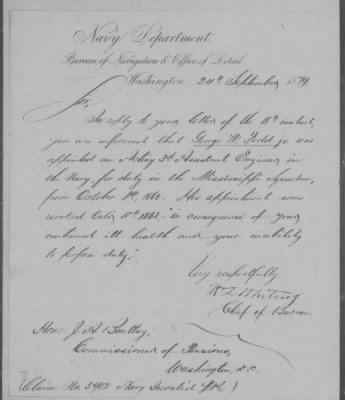 Navy Department
Bureau of Navigation & Office of Detail
Washington 24th September 1874
Sir,
In reply to your letter of the 18th instant,
you are informed that George W. Todd jr was
appointed an Acting 3d Assistant Engineer in
the Navy, for duty in the Mississippi Squadron,
from October 1st, 1862. His appointment was
revoked "in consequence of your
continued ill health and your inability
to perform duty."
Very respectfully
Whiting
Chief of Bureau
Hon: J. A. Bentley,
Commissioner of Pensions,
Washington, D.C.
(Claim No. Navy Invalid)